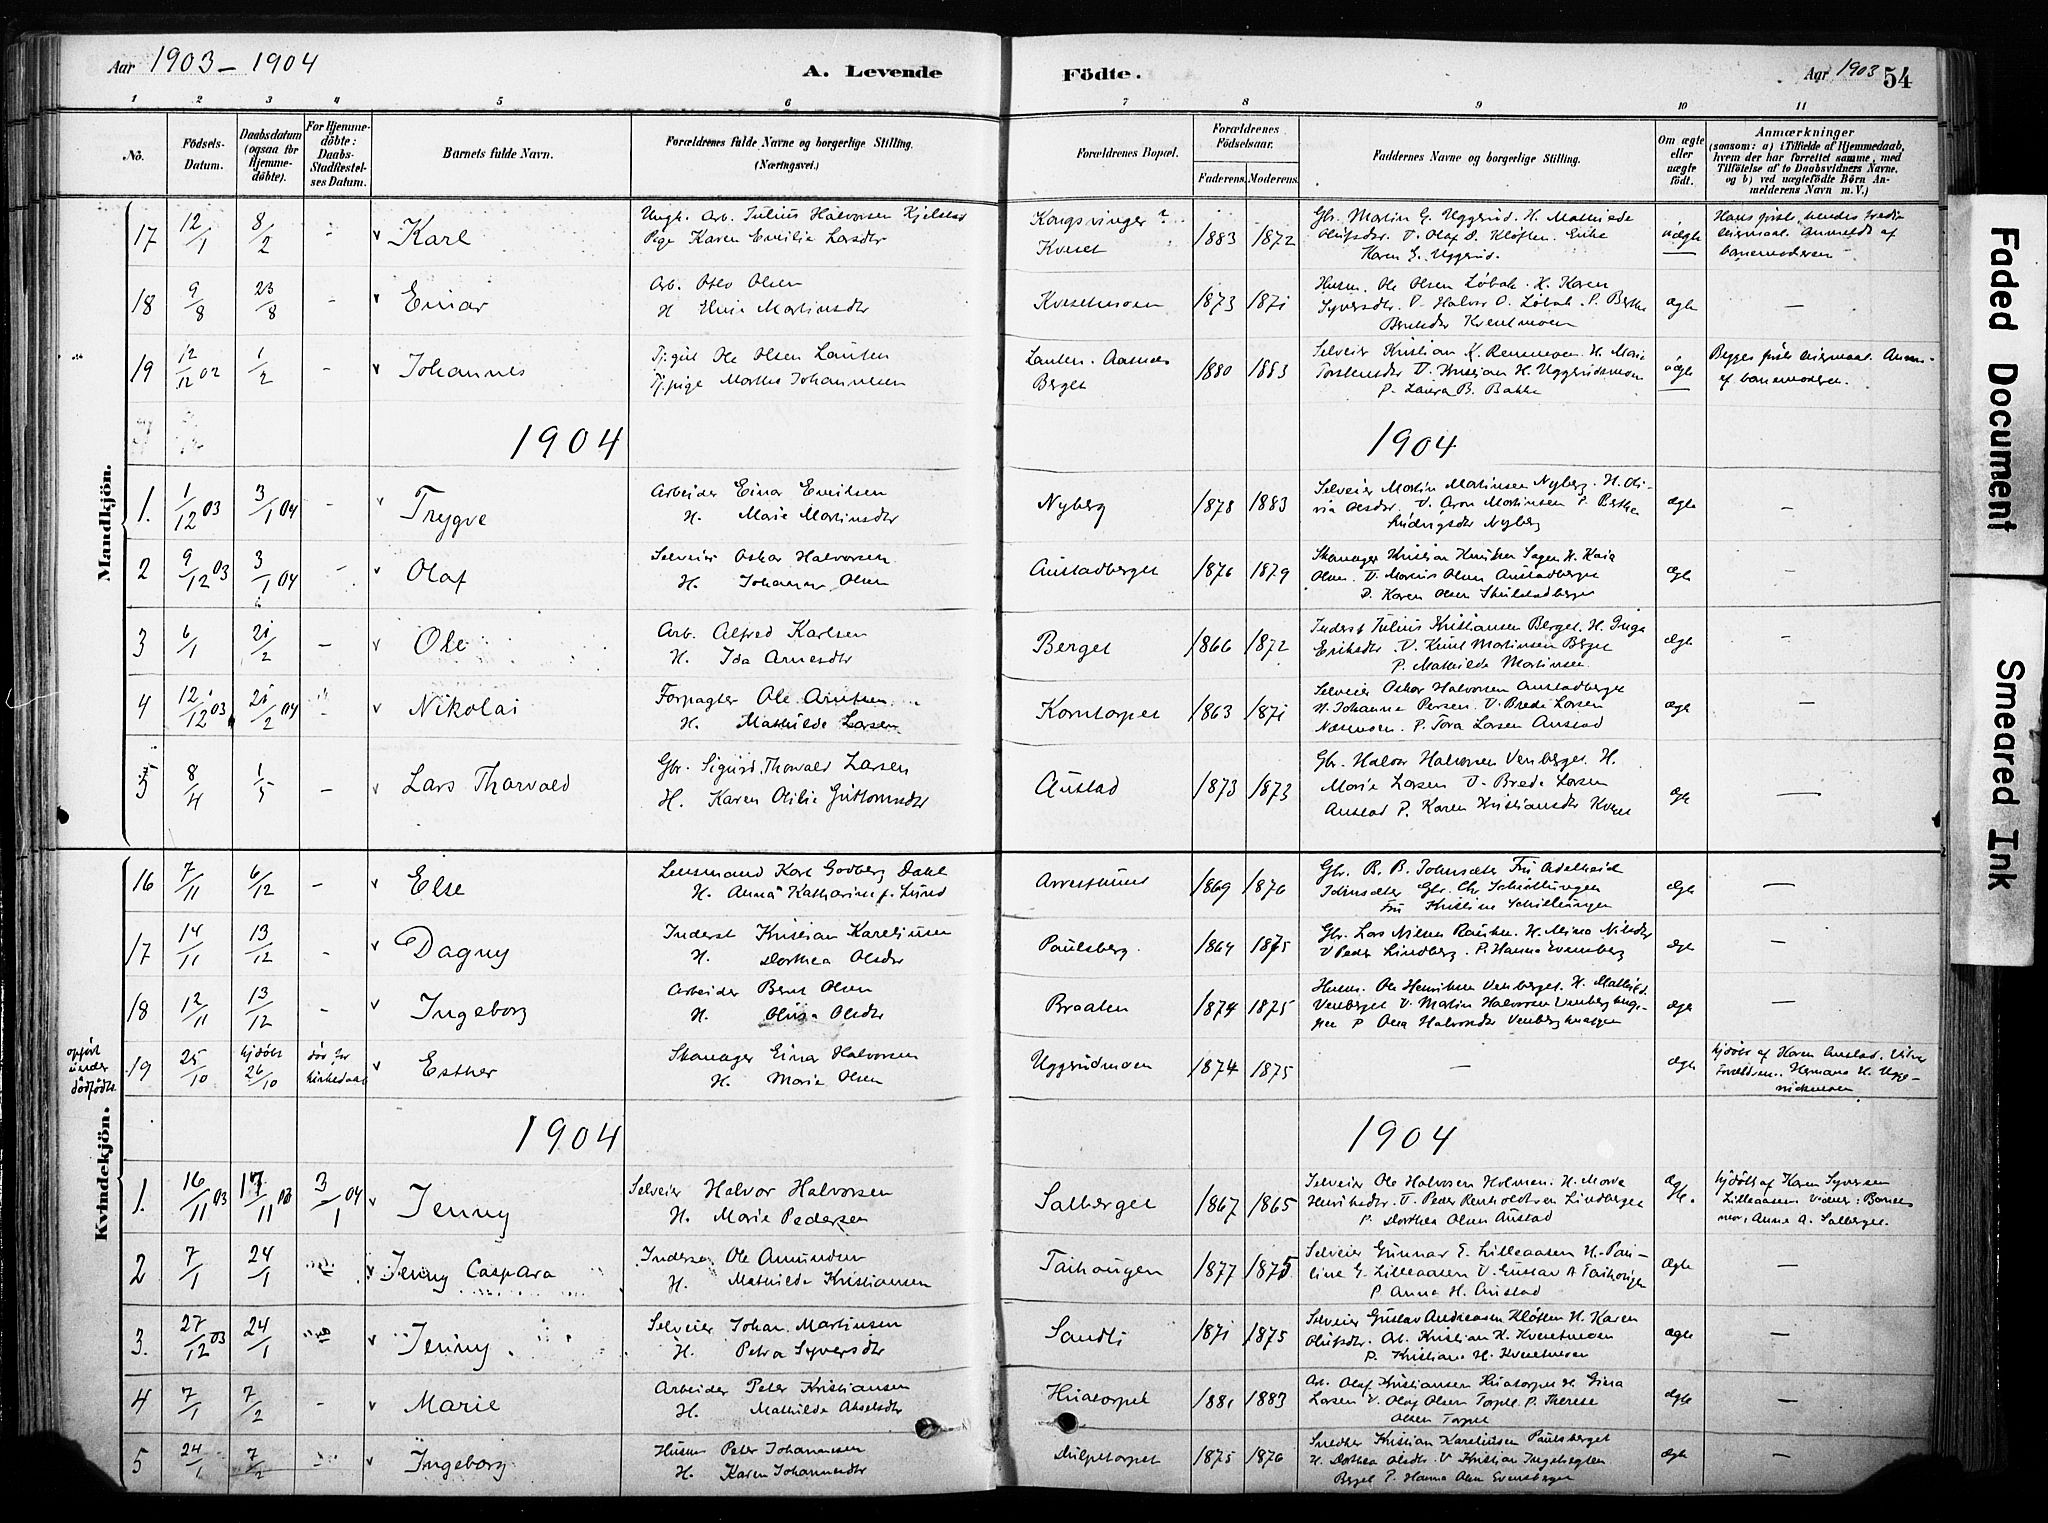 Aar 1903 – 1904
A. Levende
Födte.
Aar 1903
54
1 2 3 4 5 6 7 8 9 10 11
No.
Födsels-Datum.
Daabsdatum (ogsaa for Hjemme-döbte).
For Hjemme-döbte: Daabs-Stadfæstel-ses Datum.
Barnets fulde Navn.
Forældrenes fulde Navne og borgerlige Stilling. (Næringsvei.)
Forældrenes Bopæl.
Forældrenes Födselsaar.
Faderens. Moderens.
Faddernes Navne og borgerlige Stilling.
Om ægte eller uægte födt.
Anmærkninger
(saasom: a) i Tilfælde af Hjemmedaab, hvem der har forrettet samme, med Tilföielse af to Daabsvidners Navne. og b) ved uægtefödte Börn An-melderens Navn m. V.)
Mandkjön.
17 12/1 8/2 - Karl
Ungk. Arb. Julius Halvorsen Kjelstad
Pige Karen Emilie Larsdtr
Kongsvinger
Kveset
1883 1872
Gbr. Martin G. Uggerud. H. Mathilde
Olufsdtr. U. Olaf O. Kløften. Enke
Karen G. Uggerud.
uægte
Hans første, hendes tredie
leiermaal. Anmeldt af
barnemoderen
18 9/8 23/8 - Einar
Arb. Otto Olsen
H. Martinsdtr
Kvesetmoen
1873 1871
Husm. Ole Olsen Løbak. H. Karen
Syversdtr. U. Halvor O. Løbak. P. Berthe
ægte —
19 12/12 02 1/2 - Johannes
Tj.gut Ole Olsen Lauten
Tj.pige Marthe Johannesen
Lauten. Aasnes
Berget
1880 1883
Selveier Kristian K. Renmoen. H. Mari
Torstensdtr U. Kristian H. Uggerudsmoen
P. Laura B. Bakke
uægte
Begges første leiermaal. Anm.
af barnemoderen.
1904
1904
1. 1/12 03 3/1 04 - Trygve
Arbeider Einar Emilsen
H. Marie Martinsdtr
Nyberg
1878 1883
Selveier Martin Martinsen Nyberg. H. Oli-
via Olsdtr. U. Aron Martinsen P. Berthe
Ludvigsdtr Nyberg
ægte —
2 9/12 03 3/1 04 - Olaf
Selveier Oskar Halvorsen
H. Johanne Olsen
Austadberget
1876 1879
Skomager Kristian Knutsen Sagen H. Kaia
Olsen. U. Marius Olsen Austadberget
P. Karen Olsen Skulstadberget
ægte —
3 6/1 21/2 - Ole
Arb. Alfred Karlsen
H. Ida Arnesdtr
Berget
1866 1872
Inderst Julius Kristiansen Berget. H. Inga
Eriksdtr. U. Knut Martinsen Berget
P. Mathilde Martinsen.
ægte —
4 12/12 03 21/2 04 - Nikolai
Forpagter Ole Arntsen
H. Mathilde Larsen
Korntorpet
1863 1871
Selveier Oskar Halvorsen Austadberget
H. Johanna Persen. U. Brede Larsen
Næsmoen. P. Tora Larsen Austad
ægte —
5 8/4 1/5 - Lars Thorvald
Gbr. Sigurd Thorvald Larsen
H. Karen Otilie Guttormsdtr
Austad
1873 1873
Gbr. Halvor Halvorsen Venberget H.
Marie Larsen U. Brede Larsen
Austad P. Karen Kristiansdtr Kveset
ægte —
Kvindekjön.
16 7/11 6/12 - Else
Lensmand Karl Godberg Dahl
H. Anna Katharina f. Lund
Arresthuset
1869 1876
Gbr. B. B. Johnsæter Fru Adelheid
Johnsæter Gbr. Chr. Schiøllungen
Fru Kristine Schiøllungen
ægte —
17 14/11 13/12 - Dagny
Inderst Kristian Kareliusen
H. Dorthea Olsdtr
Paulsberg.
1864 1875
Gbr. Lars Nilsen Rauken. H. Mina Nilsdtr
U Peder Lindberg. P. Hanna Evensberg
ægte —
18 12/11 13/12 - Ingeborg
Arbeider Bernt Olsen
H. Olivia Olsdtr
Braaten
1874 1875
Husm. Ole Henriksen Venberget. H. Mathild.
Venberget U. Martin Halvorsen Venberghag-
gen P Olea Halvorsdtr Venberghaggen
ægte —
opført under dødfødte
19 25/10 hjdøbt 26/10 død før kirkedaab Esther
Skomager Einar Halvorsen
H. Marie Olsen
Uggerudmoen
1874 1875
—
ægte
hjdøbt af Karen Austad. Vidner
Forældrene. Hermana H. Ugge-
rudsmoen
1904
1904
1. 16/11 03 17/11 03 3/1 04 Jenny
Selveier Halvor Halvorsen
H. Marie Pedersen
Salberget
1867 1865
Selveier Ole Halvorsen Holmen. H. Marie
Henriksdtr. U. Peder Renholdtsen Lindberget
P. Dorthea Olsen Austad
ægte.
hjdøbt af Karen Syversen
Lilleaasen Vidner: Barnets
mor, Anne A. Salberget.
2 7/1 24/1 Jenny Caspara
Inderst Ole Amundsen
H. Mathilde Kristiansen
Taihaugen
1877 1875
Selveier Gunnar E. Lilleaasen H. Pau-
line G. Lilleaasen U. Gustav A Taihaugen
P Anna H. Austad
ægte —
3. 27/12 03 24/1 Jenny.
Selveier Johan Martinsen
H. Petra Syversdtr
Sandli
1871 1875
Selveier Gustav Andreasen Kløften H. Karen
Olufsdtr. Arb. Kristian H. Kvesetmoen
P. Kristiane H. Kvesetmoen
ægte —
4 7/1 7/2 - Marie
Arbeider Peter Kristiansen
H. Mathilde Akselsdtr
Huatorpet
1881 1883
Arb. Olaf Kristiansen Huatorpet H. Gina
Larsen U. Olaf Olsen Torpet. P. Therese
Olsen Torpet
ægte —
5 24/1 7/2 - Ingeborg
Husm Peter Johannesen
H. Karen Johannesdtr
1875 1876
Snedker Kristian Kareliusen Paulsberget
H. Dorthea Olsdtr. U Kristian Ingebregtsen
Berget P. Hanna Olsen Evensberget
ægte —
Faded Document
Smeared Ink